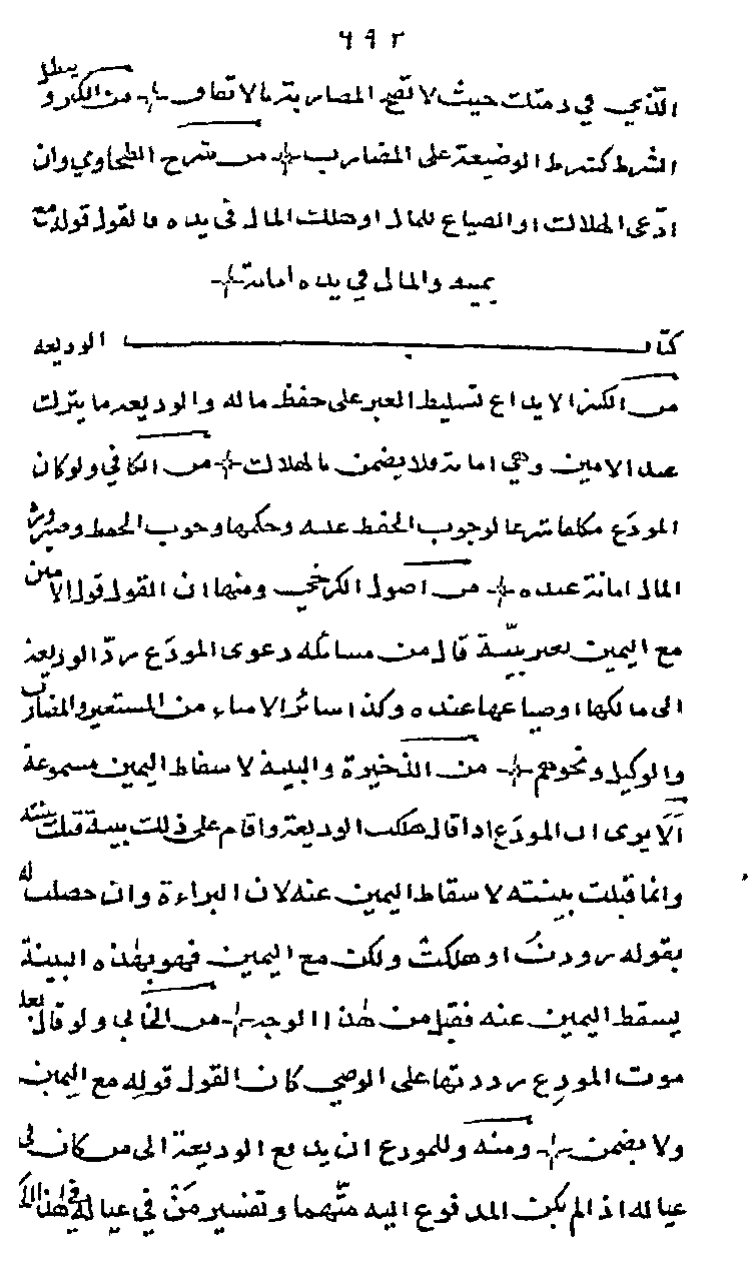 ٦٩٢
الّذي في ذمتك حيث لا تصح المضاربة بالاتفاق من الكنز و يبطل
الشرط كشرط الوضيعة على المضارب من شرح الطحاوي وان
ادّعى الهلاك او الضياع للمال او هلك المال في يده فالقول قوله مع
يمينه والمال في يده امانة
كتاب الوديعه
من الكنز الايداع تسليط الغير على حفظ ماله والوديعه ما يترك
عند الامين وهي امانة فلا يضمن بالهلاك من الكافي ولو كان
المودَع مكلفا شرعا لوجوب الحفظ عليه وحكمها وجوب الحفظ وصيرورة
المال امانة عنده من اصول الكرخي ومنها ان القول قول الامين
مع اليمين بغير بيّنة قال من مسائله دعوى المودَع ردّ الوديعة
الى مالكها او ضياعها عنده وكذا سائر الامناء من المستعير والمضارب
والوكيل ونحوهم من الذخيرة والبينة لاسقاط اليمين مسموعة
اَلَا يرى ان المودَع اذا قال هلكت الوديعة واقام على ذلك بينة قبلت بينته
وانما قبلت بينته لاسقاط اليمين عنه لان البراءة وان حصلت له
بقوله رددتُ او هلكتْ ولكن مع اليمين فهو بهٰذه البينة
يسقط اليمين عنه فقبل من هٰذا الوجه من الخاني ولو قال بعد
موت المودِع رددتها على الوصي كان القول قوله مع اليمين
ولا يضمن ومنه وللمودع ان يدفع الوديعة الى من كان في
عياله اذا لم يكن المدفوع اليه متّهما وتفسير مَنْ في عياله في هٰذا